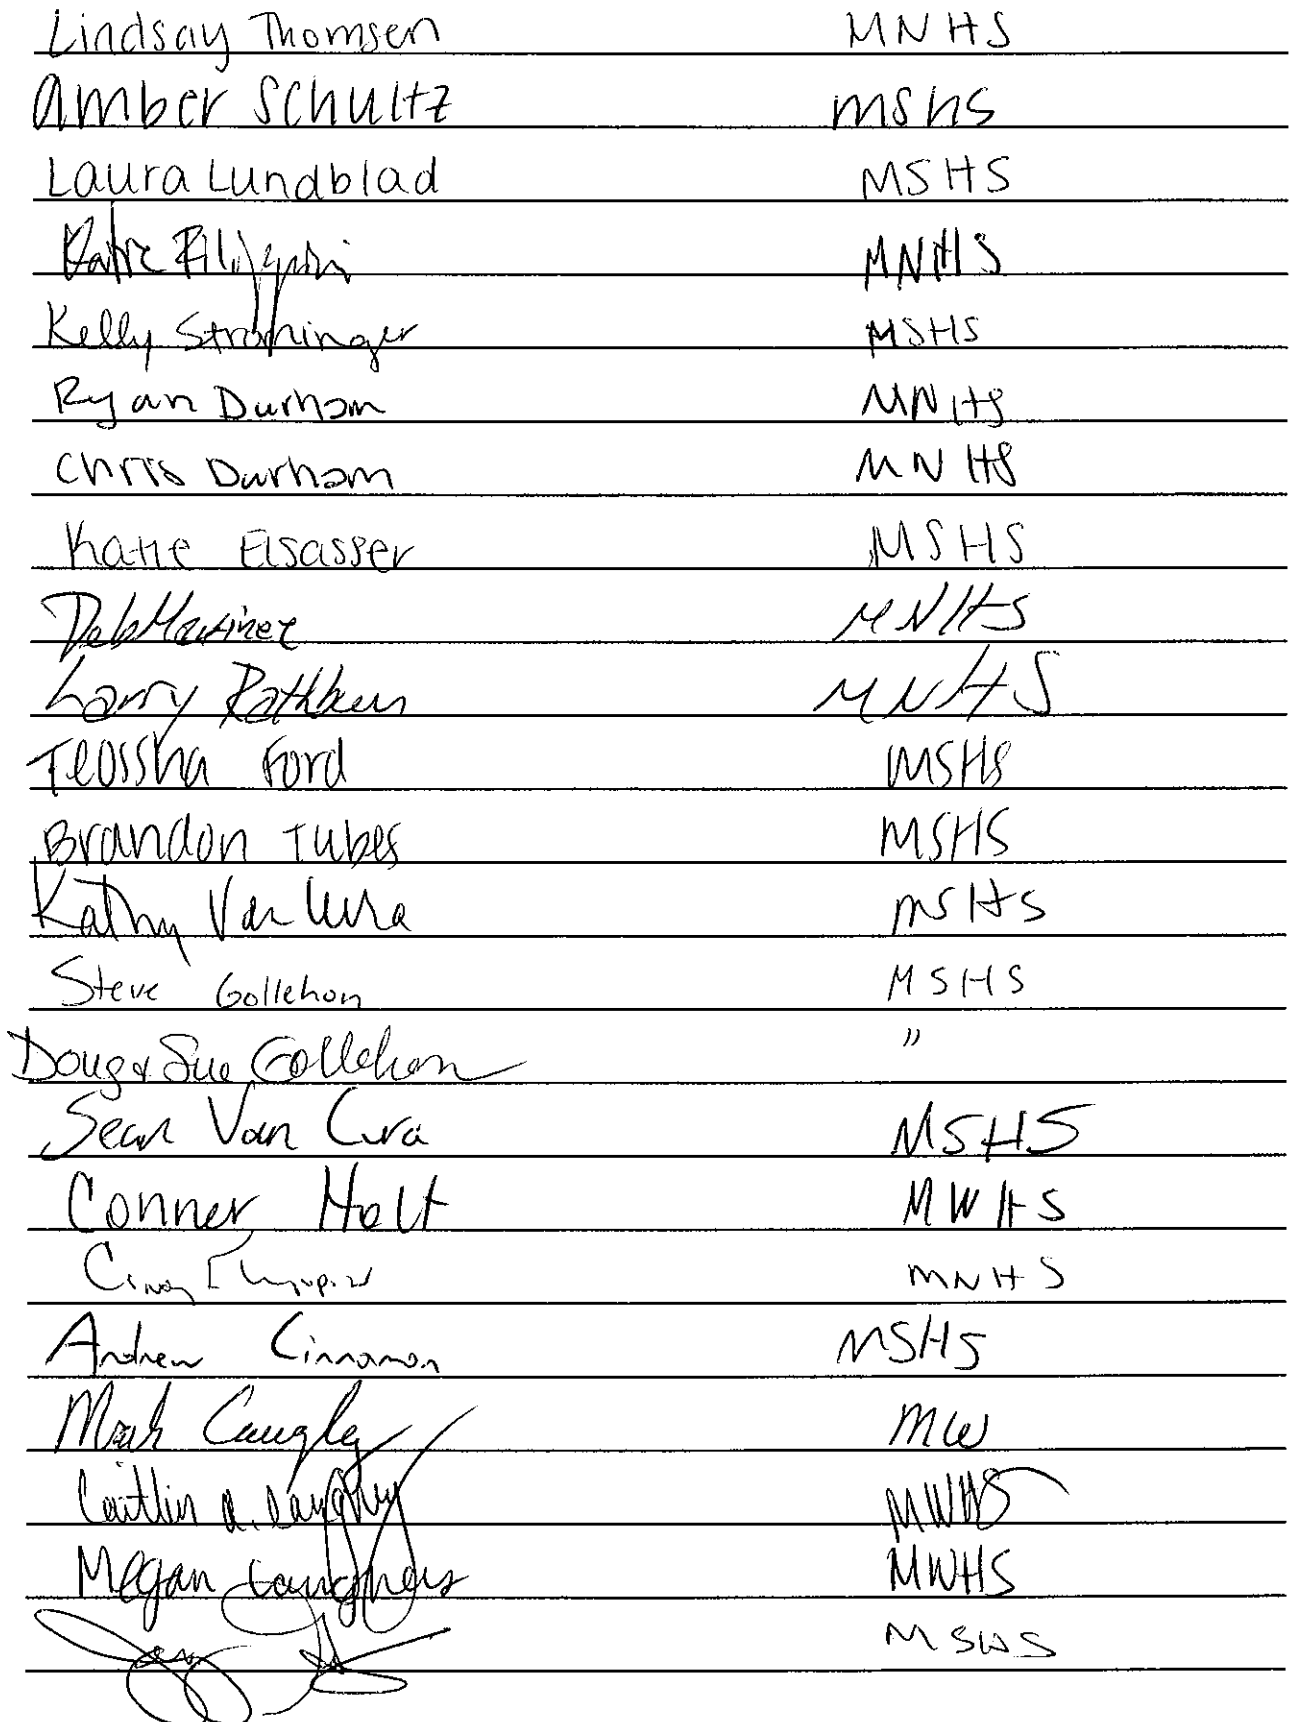 Lindsay Thomsen MNHS
Amber Schultz MSHS
Laura Lundblad MSHS
Katie MNHS
Kelly Strohminger MSHS
Ryan Durham MNHS
Chris Durham MNHS
Katie Elsasser MSHS
Deb Martinez MNHS
Larry Rathbun MNHS
Teossha Ford MSHS
Brandon Tubes MSHS
Kathy Van Cura MSHS
Steve Gollehon MSHS
Doug & Sue Gollehon "
Sean Van Cura MSHS
Conner Holt MWHS
Cindy MNHS
Andrew Cinnamon MSHS
Mark MW
Caitlin A. MWHS
Megan MWHS
MSHS